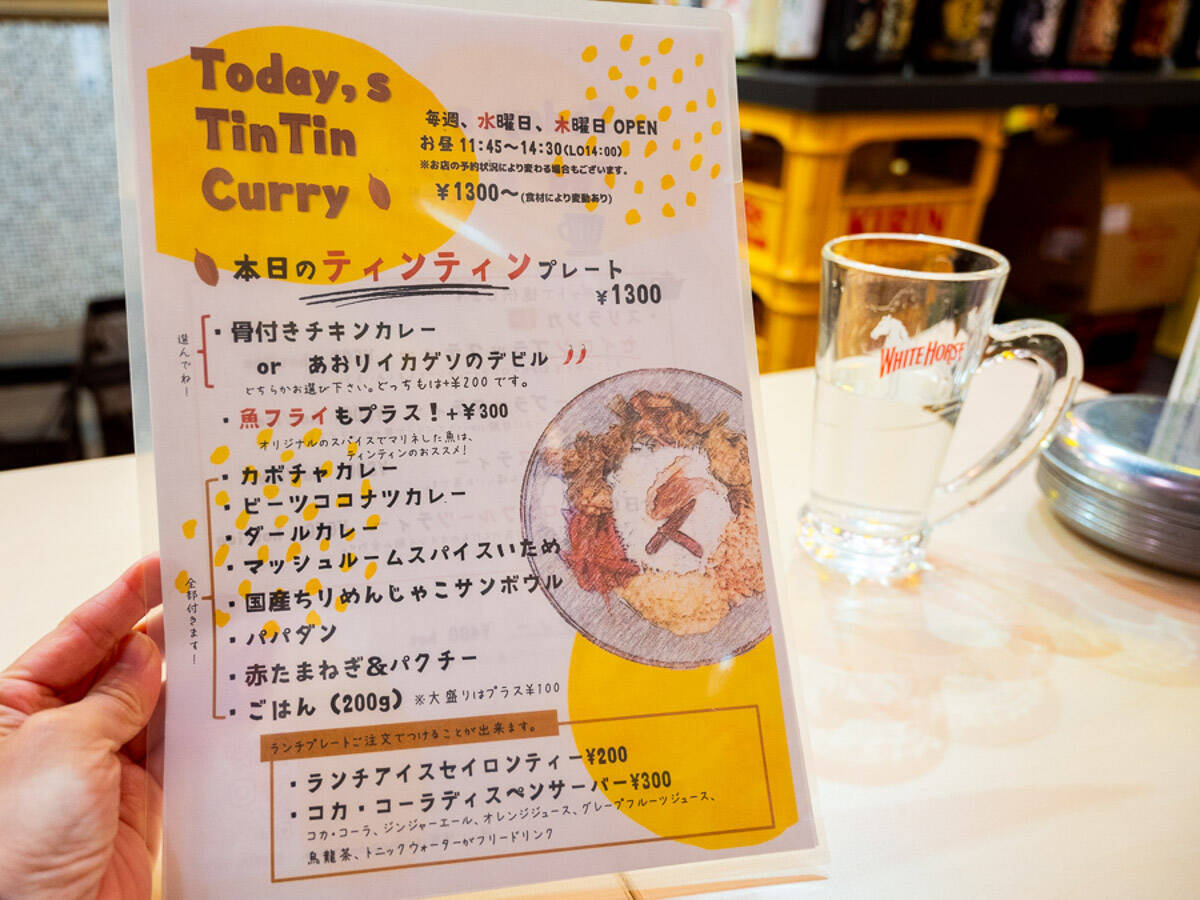 Today,s
TinTin
Curry
毎週、水曜日、木曜日 OPEN
お昼 11:45〜14:30(LO14:00)
※お店の予約状況により変わる場合もございます。
¥1300〜(食材により変動あり)
本日のティンティンプレート
¥1300
選んでね!
・骨付きチキンカレー
or あおりイカゲソのデビル
どちらかお選び下さい。どっちもは+¥200 です。
・魚フライもプラス!+¥300
オリジナルのスパイスでマリネした魚は、
ティンティンのおススメ!
全部付きます!
・カボチャカレー
・ビーツココナツカレー
・ダールカレー
・マッシュルームスパイスいため
・国産ちりめんじゃこサンボウル
・パパダン
・赤たまねぎ&パクチー
・ごはん(200g)※大盛りはプラス¥100
ランチプレートご注文でつけることが出来ます。
・ランチアイスセイロンティー¥200
・コカ・コーラディスペンサーバー¥300
コカ・コーラ、ジンジャーエール、オレンジジュース、グレープフルーツジュース、
烏龍茶、トニックウォーターがフリードリンク
WHITE HORSE
KIRIN